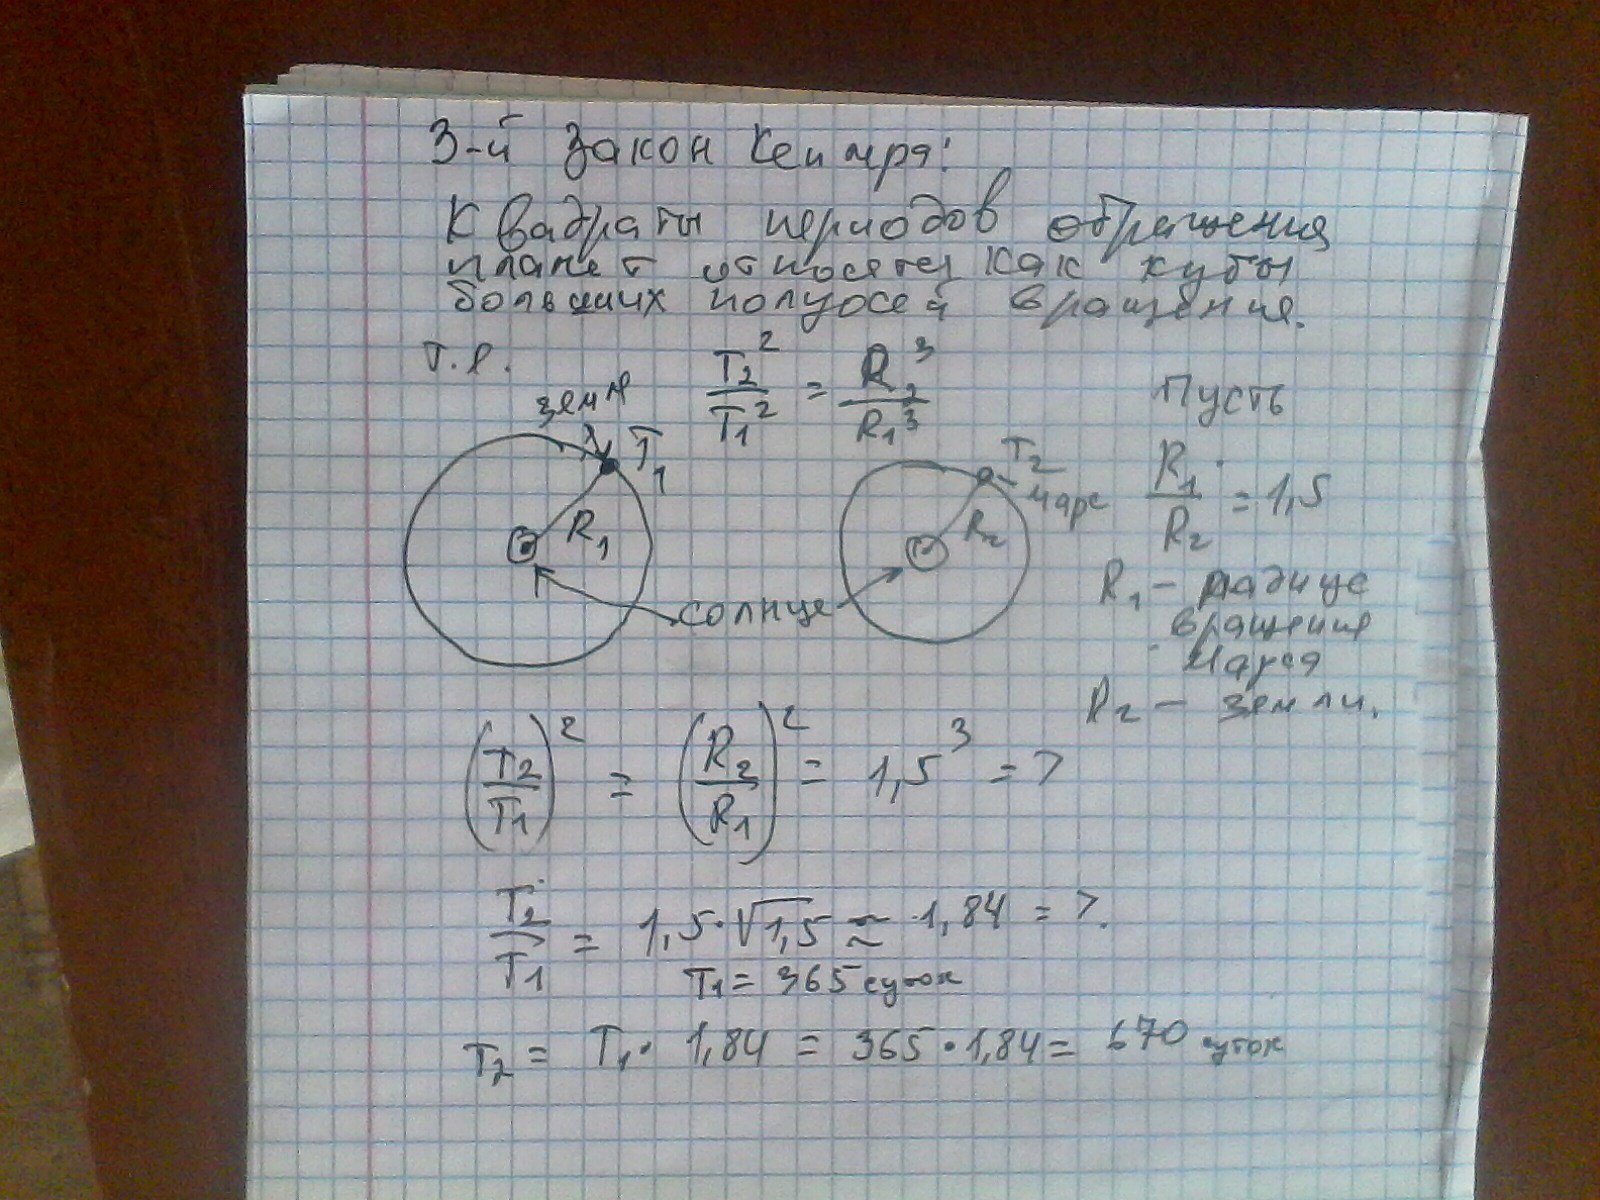 3-й закон Кеплера:
Квадраты периодов обращения
планет относятся как кубы
больших полуосей вращения.
т.е. T₂²/T₁² = R₂³/R₁³ Пусть
земля T₁ R₁
T₂ марс R₂
R₁/R₂ = 1,5
солнце
R₁ – радиус
вращения
Марса
R₂ – земли.
(T₂/T₁)² = (R₂/R₁)² = 1,5³ =>
T₂/T₁ = 1,5·√1,5 ≈ 1,84 =>.
T₁ = 365 суток
T₂ = T₁· 1,84 = 365·1,84 = 670 суток